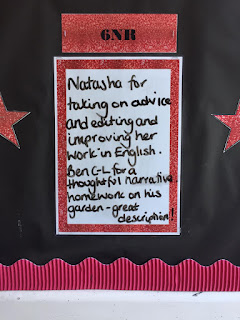 6NR
Natasha for
taking on advice
and editing and
improving her
work in English.
Ben C-L for a
thoughtful narrative
homework on his
garden - great
description!